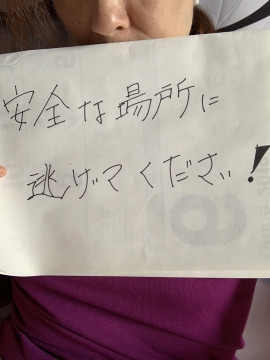 安全な場所に
逃げてください!